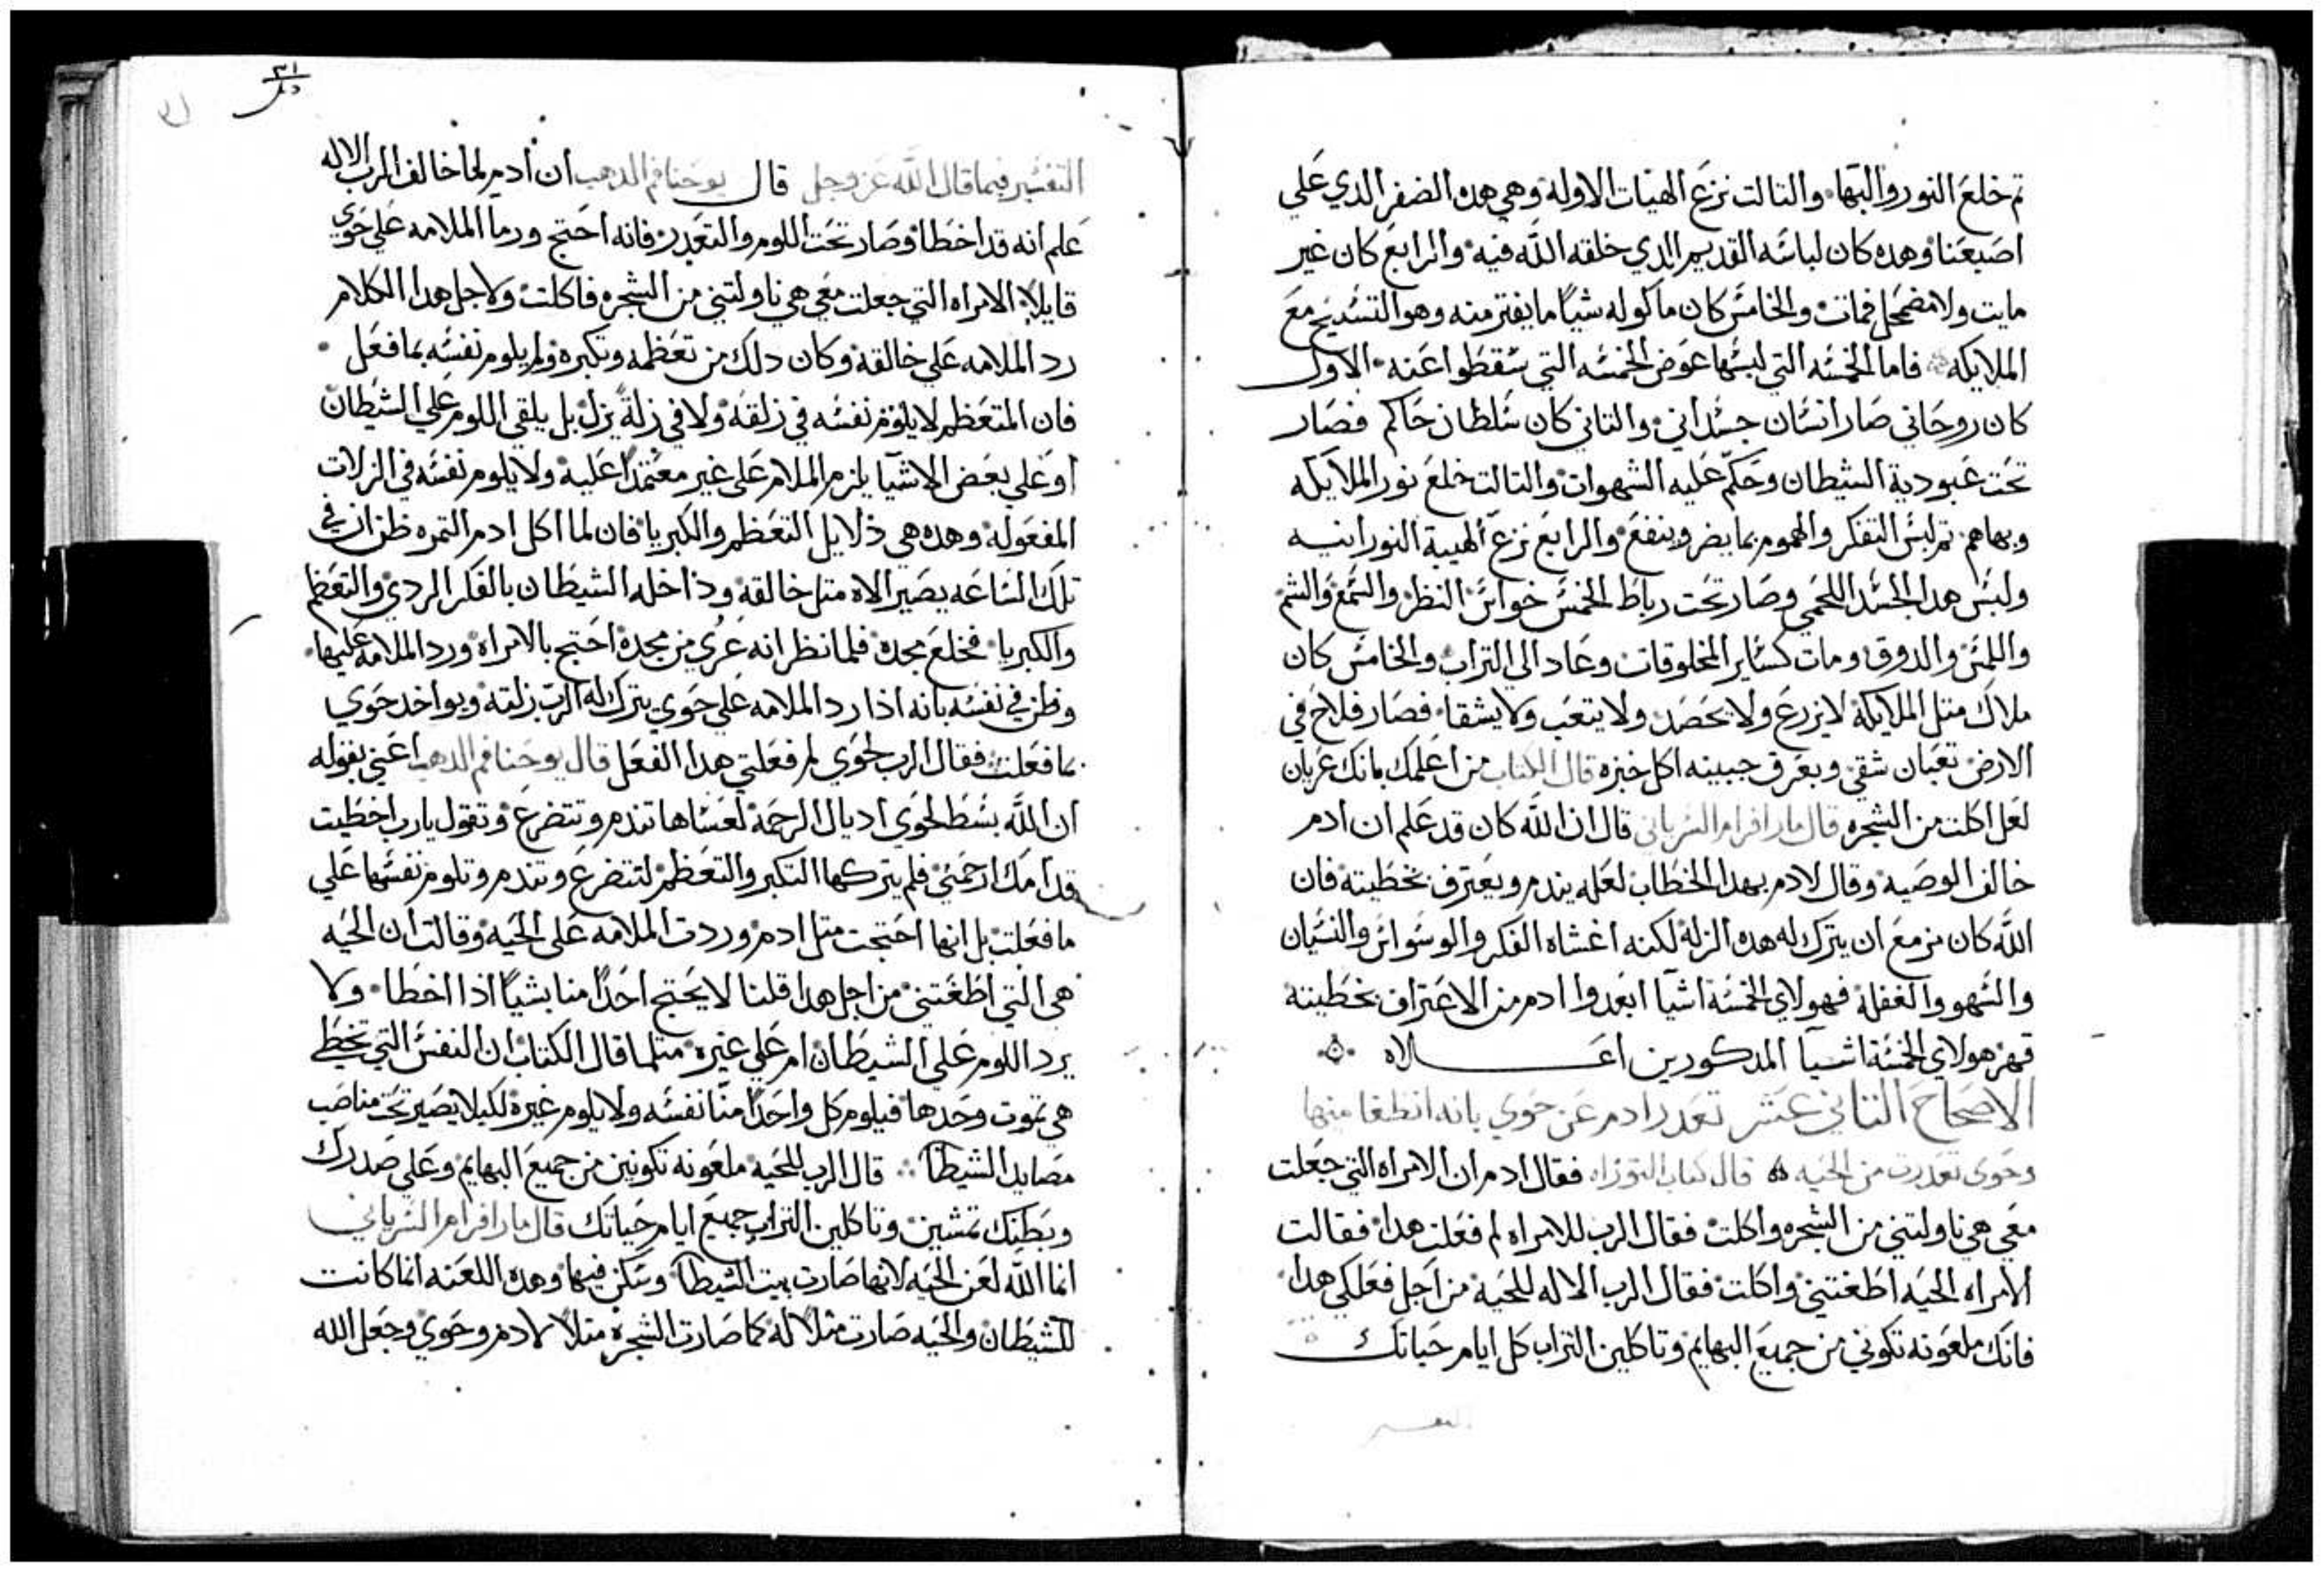 تم خلع النور والبها والتالت نزع الهيات الاوله وهي هده الضفر الدي علي
اصبعنا وهده كان لباسه القديم الدي خلقه الله فيه والرابع كان غير
مايت ولا مضمحل فمات والخامس كان ماكوله شياً ما يفتر منه وهو التسبيح مع
الملايكه فاما الخمسه التي لبسها عوض الخمسه التي سقطوا عنه الاول
كان روحاني صار انسان جسداني والتاني كان سلطان حاكم فصار
تحت عبودية الشيطان وحكم عليه الشهوات والتالت خلع نور الملايكه
وبهاهم تم لبس التفكر والهموم بما يضر وينفع والرابع نزع الهيبة النورانيه
ولبس هدا الجسد اللحمي وصار تحت رباط الخمس حواس النظر والسمع والشم
واللمس والدوق ومات كساير المخلوقات وعاد الي التراب والخامس كان
ملاك متل الملايكه لا يزرع ولا يحصد ولا يتعب ولا يشقا فصار فلاح في
الارض تعبان شقي وبعرق جبينه اكل خبزه قال الكتاب من اعلمك بانك عريان
لعل اكلت من الشجره قال مار افرام السرياني قال ان الله كان قد علم ان ادم
خالف الوصيه وقال لادم بهدا الخطاب لعله يندم ويعترف بخطيته فان
الله كان مزمع ان يترك له هده الزله لكنه اغشاه الفكر والوسواس والنسيان
والسهو والغفله فهولاي الخمسة اشيا ابعدوا ادم من الاعتراف بخطيته
فهم هولاي الخمسة اشيا المدكورين اعلاه
الاصحاح التاني عشر تعدر ادم عن حوي بانه انطغا منها
وحوي تعدرت من الحيه قال كتاب التوراه فقال ادم ان الامراه التي جعلت
معي هي ناولتني من الشجره واكلت فقال الرب للامراه لم فعلت هدا فقالت
الامراه الحيه اطغتني واكلت فقال الرب الاله للحية من اجل فعلكي هدا
فانك ملعونه تكوني من جميع البهايم وتاكلين التراب كل ايام حياتك
التفسير
٣١
التفسير فيما قال الله عز وجل قال يوحنا فم الدهب ان ادم لما خالف الرب الاله
علم انه قد اخطا وصار تحت اللوم والتعدر فانه احتج ورما الملامه علي حوي
قايلا الامراه التي جعلت معي هي ناولتني من الشجره فاكلت ولاجل هدا الكلام
رد الملامه علي خالقه وكان دلك من تعظمه وتكبره ولم يلوم نفسه بما فعل
فان المتعظم لا يلوم نفسه في زلقه ولا في زلة يزل بل يلقي اللوم علي الشيطان
او علي بعض الاشيا يلزم الملام علي غير معتمداً عليه ولا يلوم نفسه في الزلات
المفعوله وهده هي دلايل التعظم والكبريا فان لما اكل ادم التمره ظن ان في
تلك الساعه يصير الاه متل خالقه وداخله الشيطان بالفكر الردي والتعظم
والكبريا فخلع مجده فلما نظر انه عري من مجده احتج بالامراه ورد الملامه عليها
وظن في نفسه بانه ادا رد الملامه علي حوي يترك له الرب زلقه ويواخد حوي
بما فعلت فقال الرب لحوي لم فعلتي هدا الفعل قال يوحنا فم الدهب اعني بقوله
ان الله بسط لحوي اديال الرحمة لعساها تندم وتتضرع وتقول يا رب اخطيت
قدامك ارحمني فلم يتركها التكبر والتعظم لتتضرع وتندم وتلوم نفسها علي
ما فعلت بل انها احتجت متل ادم وردت الملامه علي الحيه وقالت ان الحيه
هي التي اطغتني من اجل هدا قلنا لا يحتج احداً منا بشياً ادا اخطا ولا
يرد اللوم علي الشيطان ام علي غيره متلما قال الكتاب ان النفس التي تخطي
هي تموت وحدها فيلوم كل واحداً منا نفسه ولا يلوم غيره لكيلا يصير تحت مناصب
مصايد الشيطان قال الرب للحيه ملعونه تكونين من جميع البهايم وعلي صدرك
وبطنك تمشين وتاكلين التراب جميع ايام حياتك قال مار افرام السرياني
انما الله لعن الحيه لانها صارت بيت الشيطان وسكن فيها وهده اللعنه انما كانت
للشيطان والحيه صارت متلاً له كما صارت الشجره متلاً لادم وحوي وجعل الله